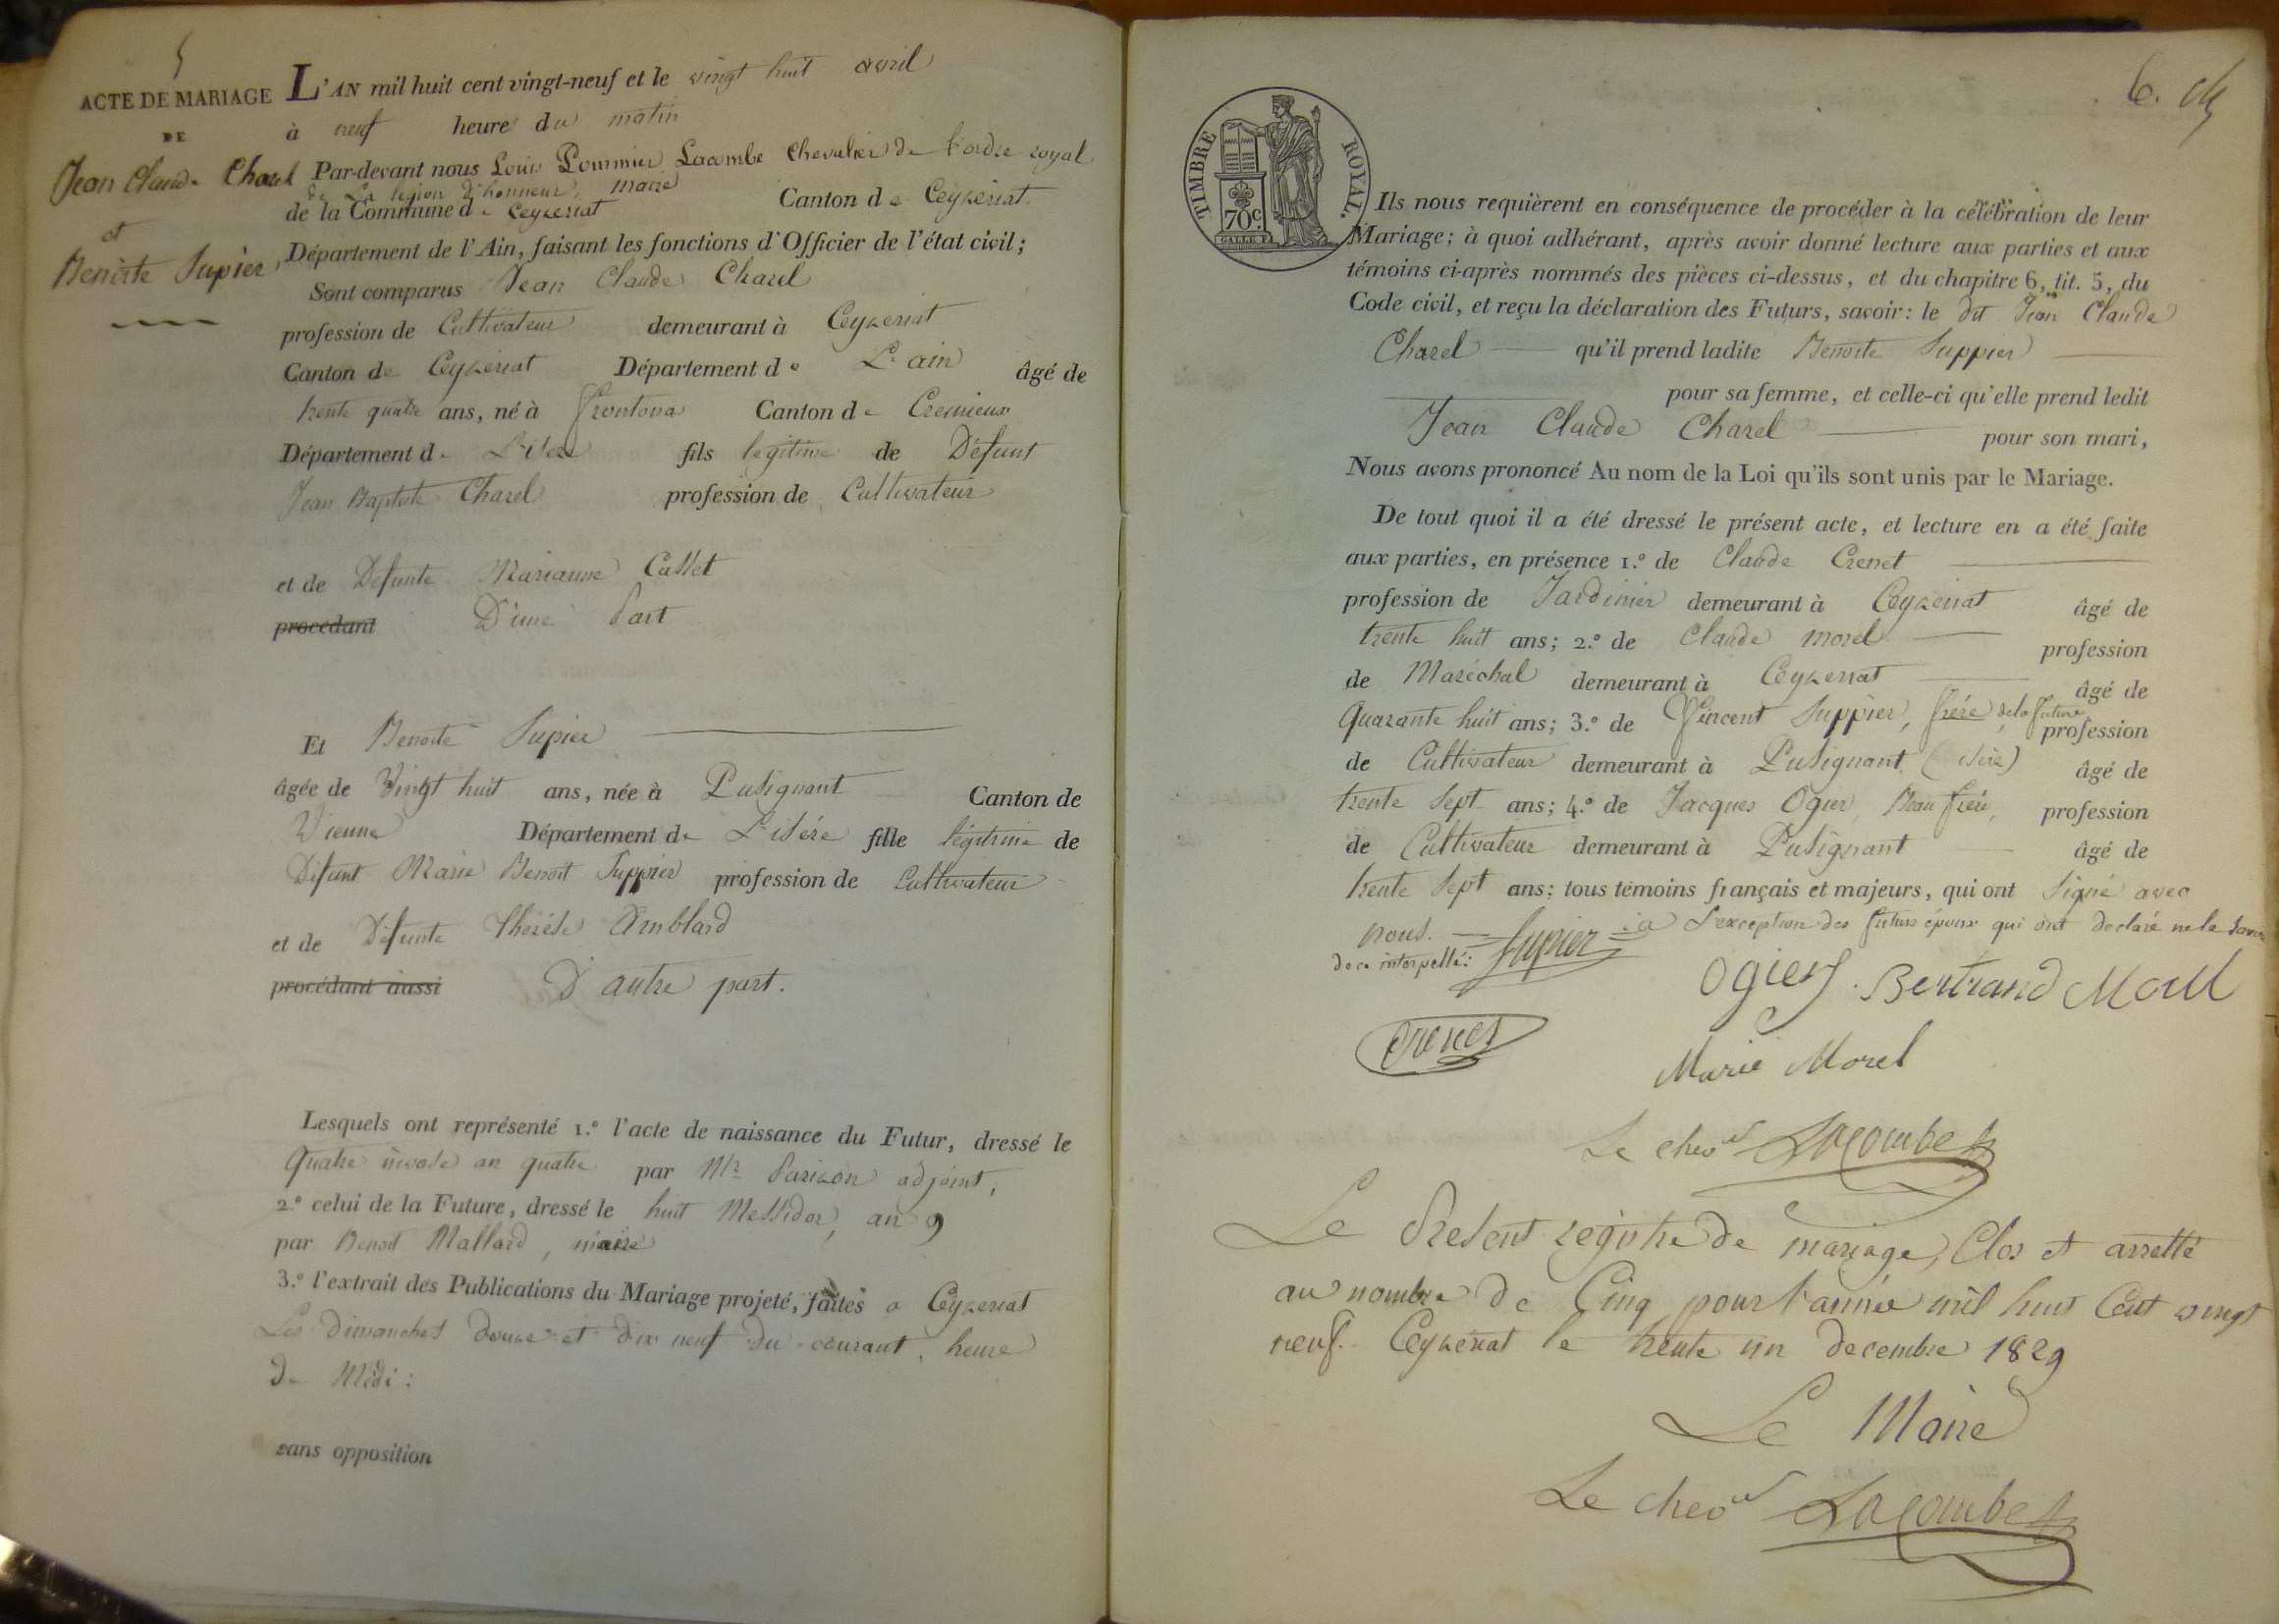 5
ACTE DE MARIAGE
DE
Jean Claude Charel
et
Benoite Supier,
L'AN mil huit cent vingt-neuf et le vingt huit avril
à neuf heure du matin
Par-devant nous Louis Pommier Lacombe chevalier de l'ordre royal
de La légion d'honneur, maire
de la Commune de Ceyzeriat Canton de Ceyzeriat.
Département de l'Ain, faisant les fonctions d'Officier de l'état civil;
Sont comparus Jean Claude Charel
profession de Cultivateur demeurant à Ceyzeriat
Canton de Ceyzeriat Département de L'ain âgé de
trente quatre ans, né à frontona Canton de Cremieux
Département de L'isere fils legitime de Défunt
Jean Baptiste Charel profession de Cultivateur
et de Defunte Marianne Callet
procédant D'une Part
Et Benoite Supier
âgée de Vingt huit ans, née à Pusignant Canton de
Vienne Département de L'isére fille légitime de
Défunt Marie Benoit Suppier profession de Cultivateur
et de Défunte Thérése Amblard
procédant aussi D'autre part.
Lesquels ont représenté 1.º l'acte de naissance du Futur, dressé le
Quatre nivose an quatre par Mr Parizon adjoint,
2.º celui de la Future, dressé le huit Messidor, an 9
par Benoit Mallard, maire
3.º l'extrait des Publications du Mariage projeté, faites a Ceyzeriat
Les dimanches douze et dix neuf du courant, heure
de Midi:
sans opposition
6.
TIMBRE ROYAL.
70c.
Ils nous requièrent en conséquence de procéder à la célébration de leur
Mariage; à quoi adhérant, après avoir donné lecture aux parties et aux
témoins ci-après nommés des pièces ci-dessus, et du chapitre 6, tit. 5, du
Code civil, et reçu la déclaration des Futurs, savoir: le dit Jean Claude
Charel qu'il prend ladite Benoite Suppier
pour sa femme, et celle-ci qu'elle prend ledit
Jean Claude Charel pour son mari,
Nous avons prononcé Au nom de la Loi qu'ils sont unis par le Mariage.
De tout quoi il a été dressé le présent acte, et lecture en a été faite
aux parties, en présence 1.º de Claude Crenet
profession de Jardinier demeurant à Ceyzeriat âgé de
trente huit ans; 2.º de Claude morel profession
de Maréchal demeurant à Ceyzeriat âgé de
Quarante huit ans; 3.º de Vincent Suppier, frére de la future profession
de Cultivateur demeurant à Pusignant (isére) âgé de
trente sept ans; 4.º de Jacques Ogier, Beau frére, profession
de Cultivateur demeurant à Pusignant âgé de
trente sept ans; tous témoins français et majeurs, qui ont signé avec
nous. a L'exception des futurs époux qui ont declaré ne le savoir
de ce interpellé: Supier
Ogier Bertrand Morel
Crenet
Marie Morel
Le chever Lacombe
Le Present registre de mariage, Clos et arretté
au nombre de Cinq pour l'année mil huit Cent vingt
neuf. Ceyzériat le trente un decembre 1829
Le Maire
Le chever Lacombe